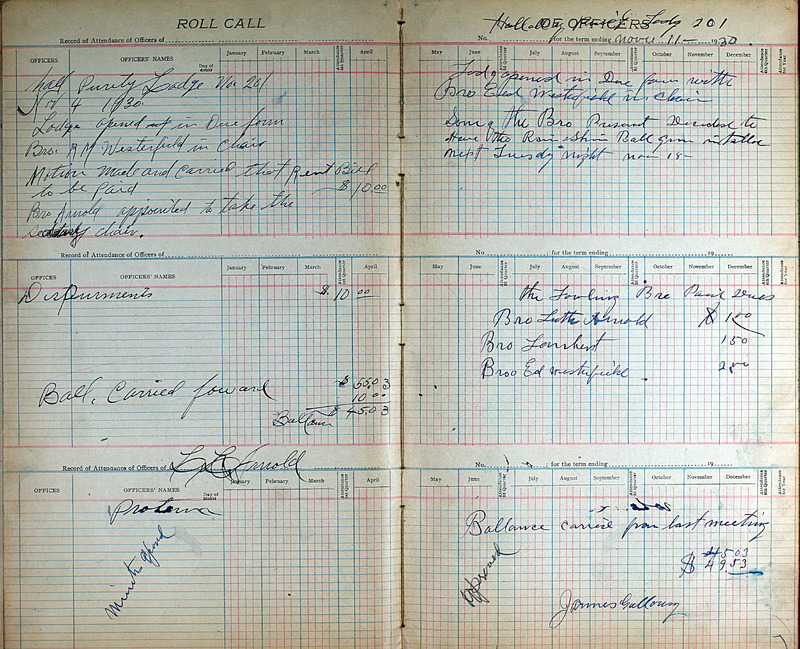 ROLL CALL
Record of Attendance of Officers of
January February March April
OFFICERS OFFICERS' NAMES Day of Month Attendance 1st Quarter
Hall Purity Lodge No 201
Nov 4 1930
Lodge opened up in Due form
Bro. R M Westerfield in Chair
Motion made and carried that Rent Bill
to be paid $10.00
Bro Arnold appointed to take the
chair.
Record of Attendance of Officers of
January February March April
OFFICES OFFICERS' NAMES Attendance 1st Quarter
Disburments $10 00
Ball. Carried forward $55.03
10 00
Ballance $45.03
Record of Attendance of Officers of L L Arnold
January February March April
OFFICES OFFICERS' NAMES Day of Month Attendance 1st Quarter
Protem
Minits
Hall Lodg 201
OF OFFICERS
No. for the term ending Nove 11- 1930.
May June Attendance 2d Quarter July August September Attendance 3d Quarter October November December Attendance 4th Quarter Attendance for Year
Lodg opened in Due form with
Bro Ed Westerfield in Chair
the Bro Present Decided to
Have the Ball
next Tuesday night nov 18-
No. for the term ending 19
May June Attendance 2d Quarter July August September Attendance 3d Quarter October November December Attendance 4th Quarter Attendance for Year
the Fowling Bro Paid Dues
Bro Luth Arnold $1 00
Bro Lambert 1 50
Broo Ed Westerfield 2 00
No. for the term ending 19
May June Attendance 2d Quarter July August September Attendance 3d Quarter October November December Attendance 4th Quarter Attendance for Year
Ballance carried from last meeting
4503
$ 49.53
Approved
James Galloway